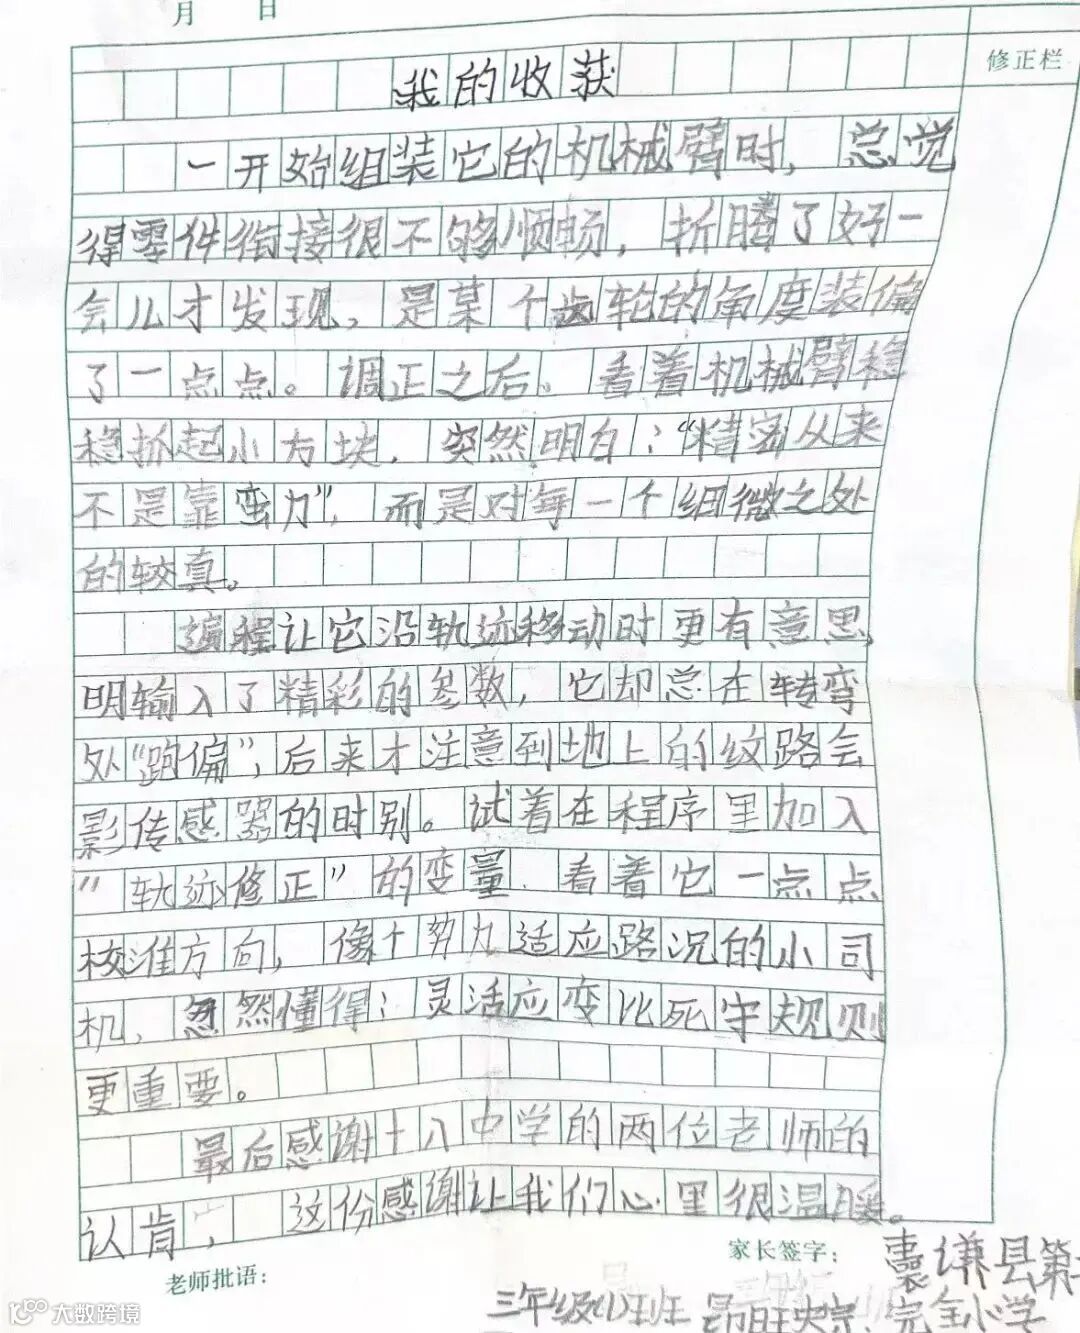 月 日
修正栏
我的收获
一开始组装它的机械臂时，总觉
得零件衔接很不够顺畅，折腾了好一
会儿才发现，是某个齿轮的角度装偏
了一点点。调正之后、看着机械臂稳
稳抓起小方块，突然明白："精密从来
不是靠蛮力"，而是对每一个细微之处
的较真。
编程让它沿轨迹移动时更有意思，
明输入了精彩的参数，它却总在转弯
处"跑偏"，后来才注意到地上的纹路会
影传感器的时别。试着在程序里加入
"轨迹修正"的变量．看着它一点点
校准方向，像个努力适应路况的小司
机，忽然懂得：灵活应变比死守规则
更重要。
最后感谢十八中学的两位老师的
认肯，这份感谢让我们心里很温暖。
老师批语：
家长签字：
囊谦县第
三年级(1)班 昂旺央宗 完全小学
大数跨境